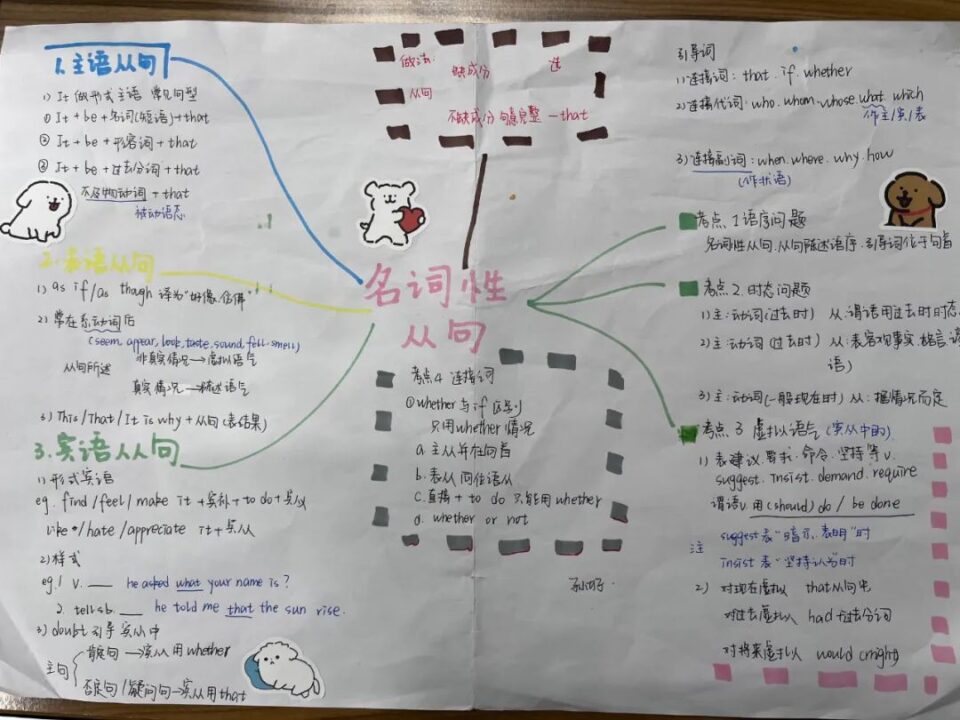 1.主语从句
1) It 做形式主语 常见句型
① It + be + 名词(短语)+ that
② It + be + 形容词 + that
③ It + be + 过去分词 + that
不及物动词 + that
被动语态
2.表语从句
1) as if/as though 译为"好像,仿佛"
2) 常在系动词后
(seem, appear, look, taste, sound, fell, smell)
从句所述
非真实情况→虚拟语气
真实情况→陈述语气
3) This/That/It is why + 从句(表结果)
3.宾语从句
1) 形式宾语
eg. find/feel/make it + 宾补 + to do + 宾从
like/hate/appreciate it + 宾从
2) 样式
eg.1 v. ___ he asked what your name is?
2. tell sb. ___ he told me that the sun rise.
3) doubt 引导宾从中
主句
肯定句→宾从用whether
否定句/疑问句→宾从用that
做法:
缺成分 选
从句
不缺成分 句意完整 — that
名词性
从句
考点4 连接词
①whether 与 if 区别
只用whether情况
a. 主从并在句首
b. 表从同位语从
c. 直接 + to do 只能用 whether
d. whether or not
引导词
1) 连接词: that. if. whether
2) 连接代词: who. whom. whose. what. which
作主/宾/表
3) 连接副词: when. where. why. how
(作状语)
考点 1 语序问题
名词性从句,从句陈述语序,引导词位于句首
考点 2.时态问题
1) 主:动词(过去时) 从:谓语用过去时时态
2) 主:动词(过去时) 从:表客观事实,格言谚
语)
3) 主:动词(一般现在时) 从:据情况而定
考点 3 虚拟语气 (宾从中的)
1) 表建议.要求.命令.坚持等v.
suggest. insist. demand. require
谓语v.用(should) do / be done
注
suggest 表"暗示,表明"时
insist 表"坚持认为"时
2) 对现在虚拟 that从句中
对过去虚拟 had + 过去分词
对将来虚拟 would (might)